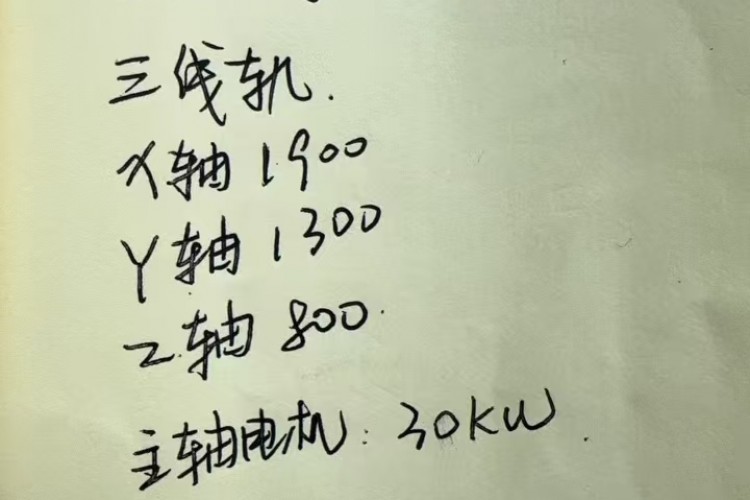 三线轨.
X轴 1900
Y轴 1300
Z轴 800.
主轴电机: 30KW.